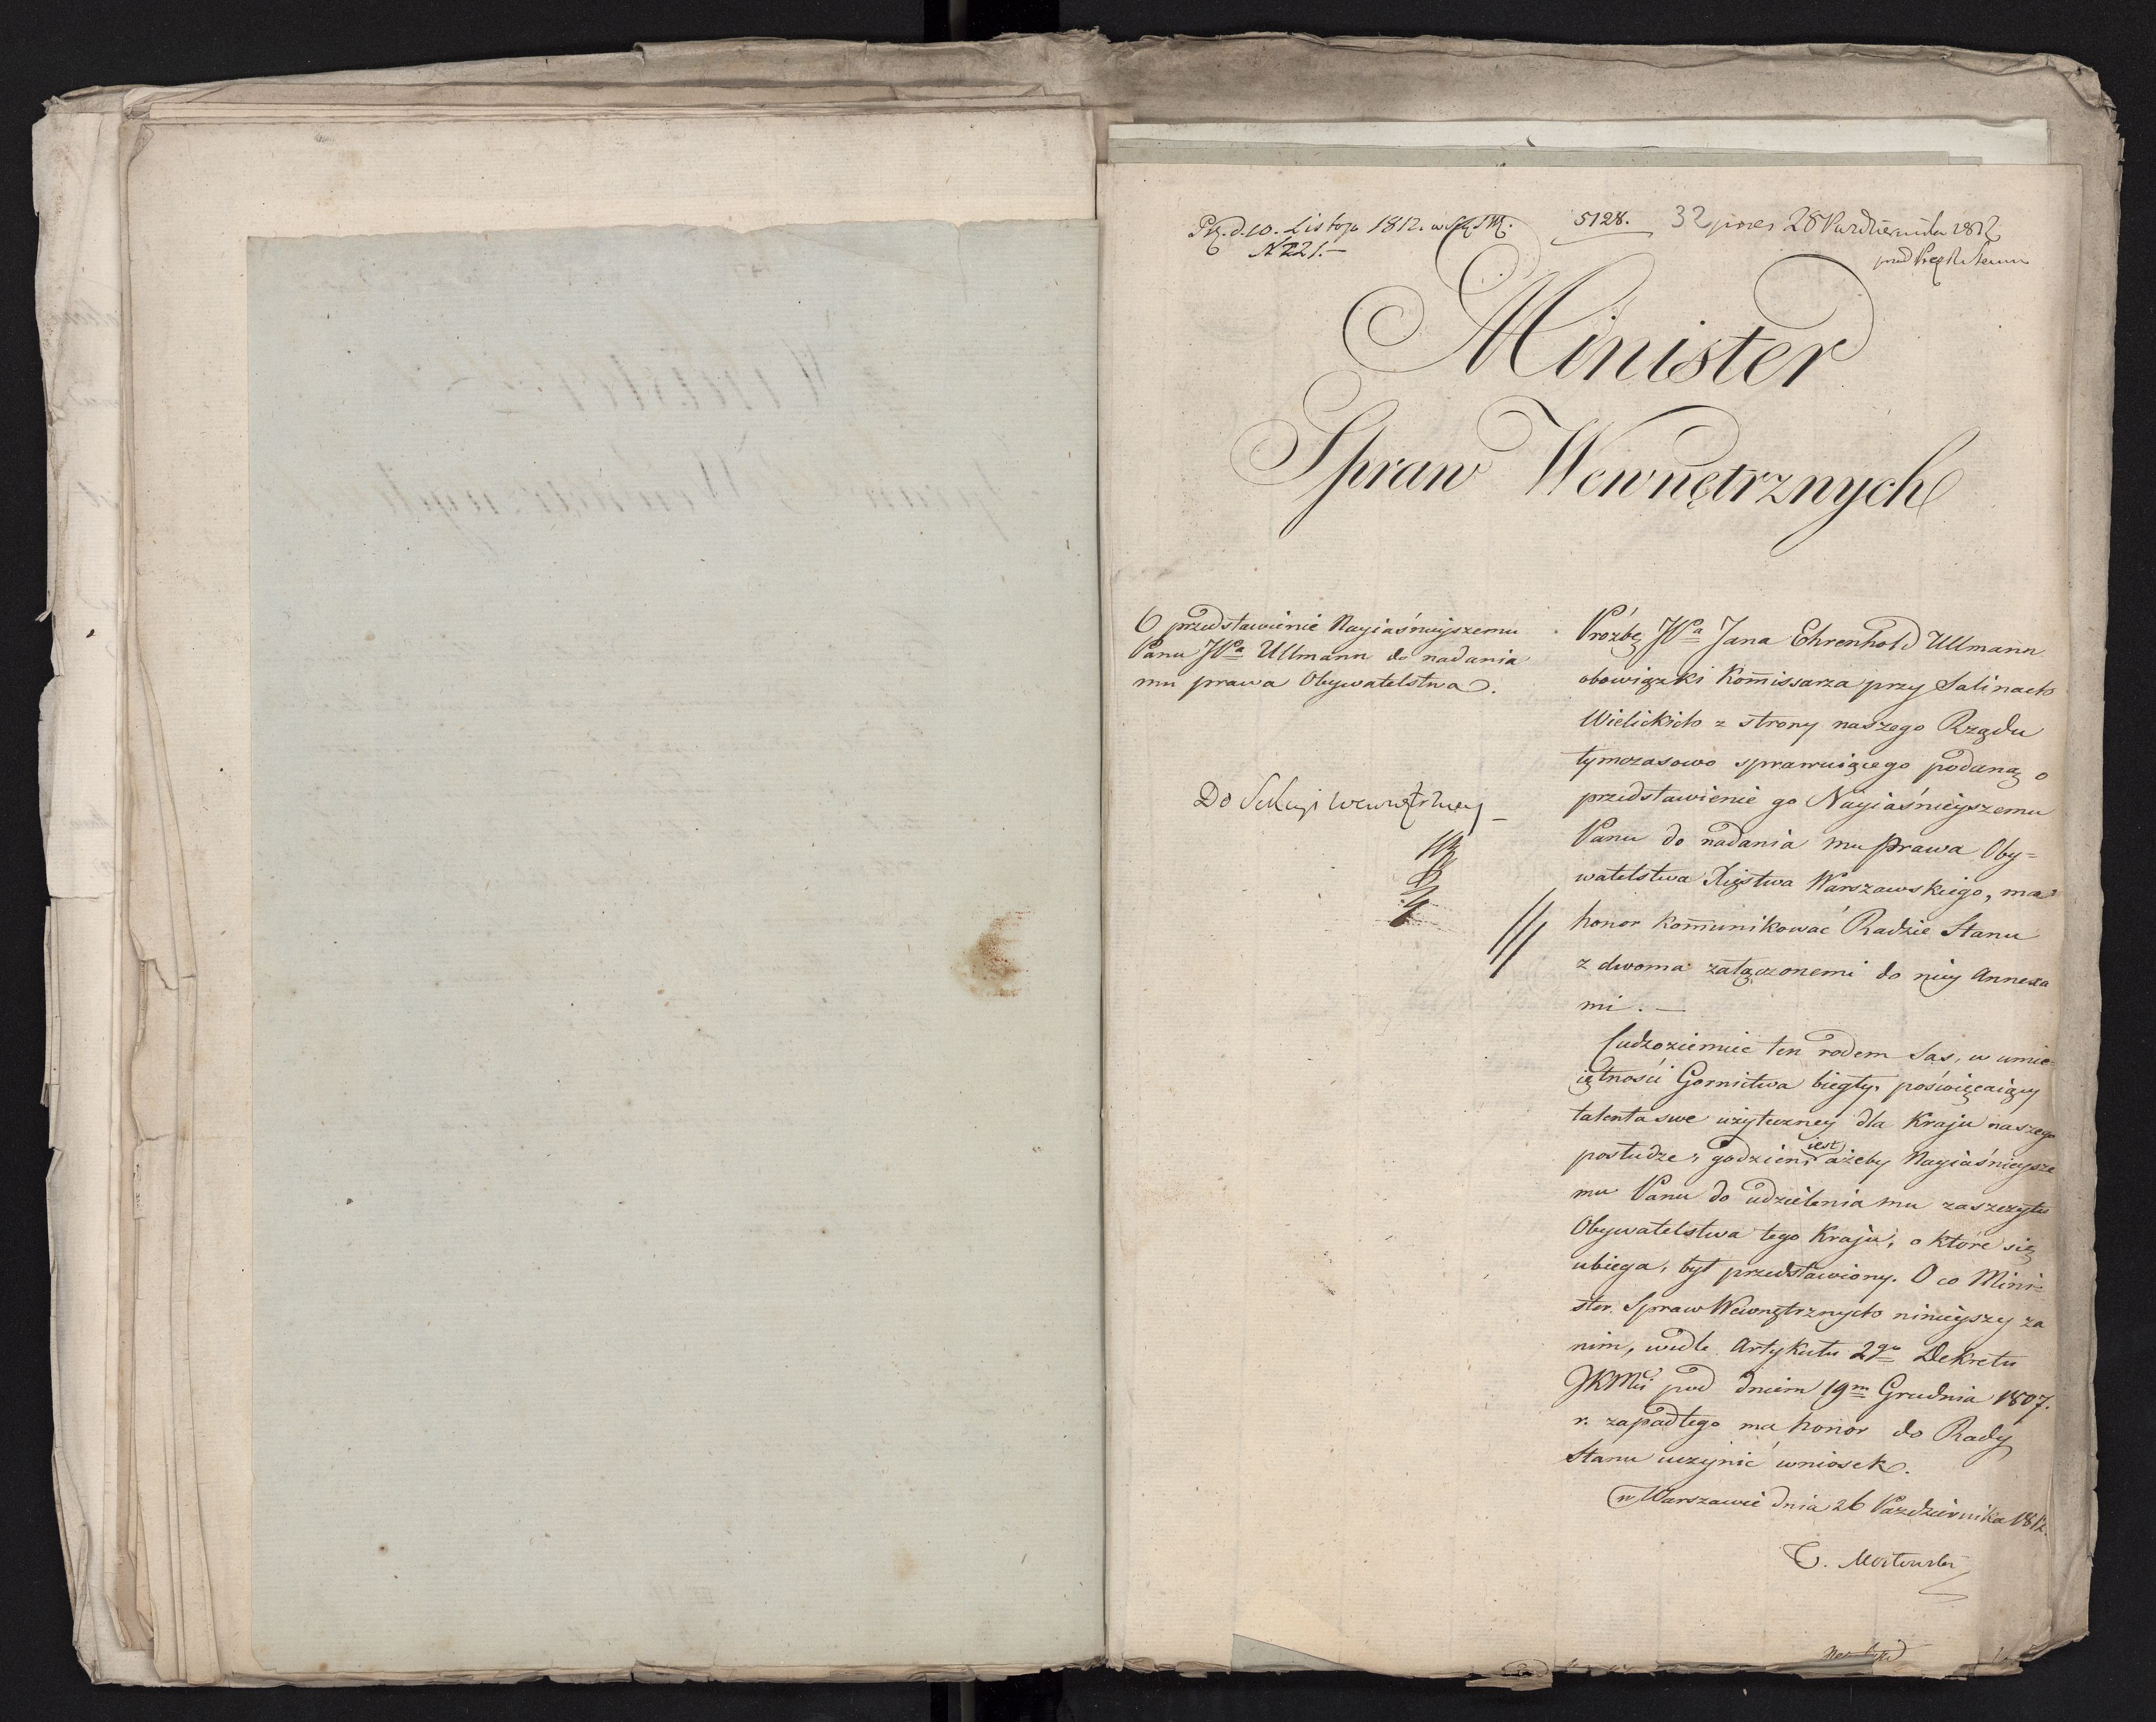 d. 10. Listop. 1812.
N 221.
5128.
32 28 Października 1812
Minister
Spraw Wewnętrznych
O przedstawienie Nayiaśnieyszemu
Panu JPa Ullmann do nadania
mu prawa Obywatelstwa.
Do Sekcyi Wewnętrzney
Prozbę JPa Jana Ehrenhold Ullmann
obowiązki Kom̅issarza przy Salinach
Wielickich z strony naszego Rządu
tymczasowo sprawuiącego podaną o
przedstawienie go Nayiaśnieyszemu
Panu do nadania mu prawa Oby=
watelstwa Xięstwa Warszawskiego, ma
honor kom̅unikować Radzie Stanu
z dwoma załączonemi do niey Annexa
mi. —
Cudzoziemiec ten rodem Sas, w umie=
iętności Gornictwa biegły, poświęcaiący
talenta swe użyteczney dla Kraju naszego
posłudze, godzien iest, ażeby Nayiaśnieysze
mu Panu do udzielenia mu zaszczytu
Obywatelstwa tego Kraju, o które się
ubiega, był przedstawiony. O co Mini=
ster Spraw Wewnętrznych ninieyszy za
nim, wedle Artykułu 2go Dekretu
JKMci pod dniem 19m Grudnia 1807.
r. zapadłego ma honor do Rady
Stanu uczynić wniosek.
w Warszawie dnia 26 Października 1812.
T. Mostowski